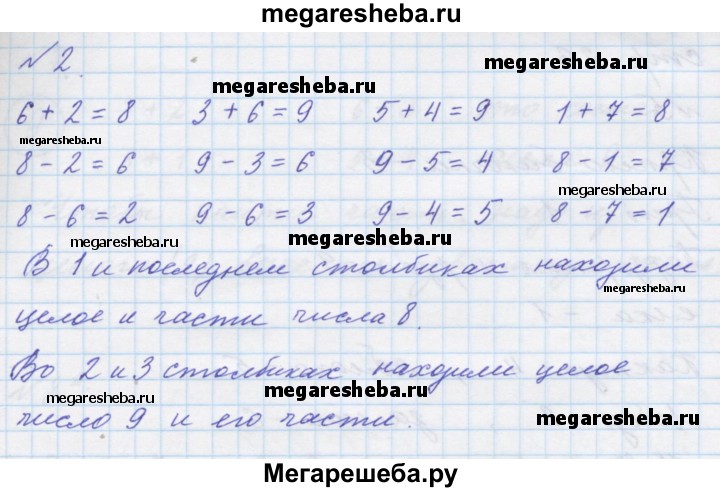 megaresheba.ru
№ 2.
megaresheba.ru megaresheba.ru
6 + 2 = 8 3 + 6 = 9 5 + 4 = 9 1 + 7 = 8
megaresheba.ru
8 - 2 = 6 9 - 3 = 6 9 - 5 = 4 8 - 1 = 7
megaresheba.ru
8 - 6 = 2 9 - 6 = 3 9 - 4 = 5 8 - 7 = 1
megaresheba.ru megaresheba.ru
В 1 и последнем столбиках находили
megaresheba.ru
целое и части числа 8.
Во 2 и 3 столбиках находили целое
megaresheba.ru megaresheba.ru
число 9 и его части.
Мегарешеба.ру